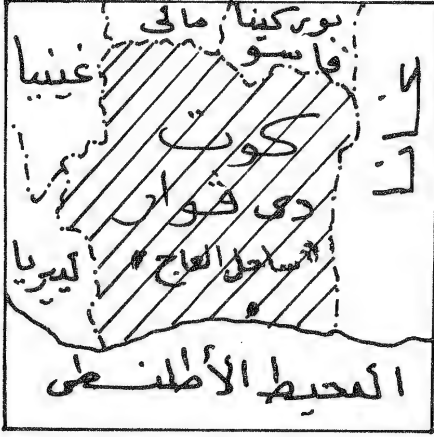 مالى
بوركينا
فاسو
غينيا
غانا
كوت
دى فوار
"ساحل العاج"
ليبريا
المحيط الأطلنطى